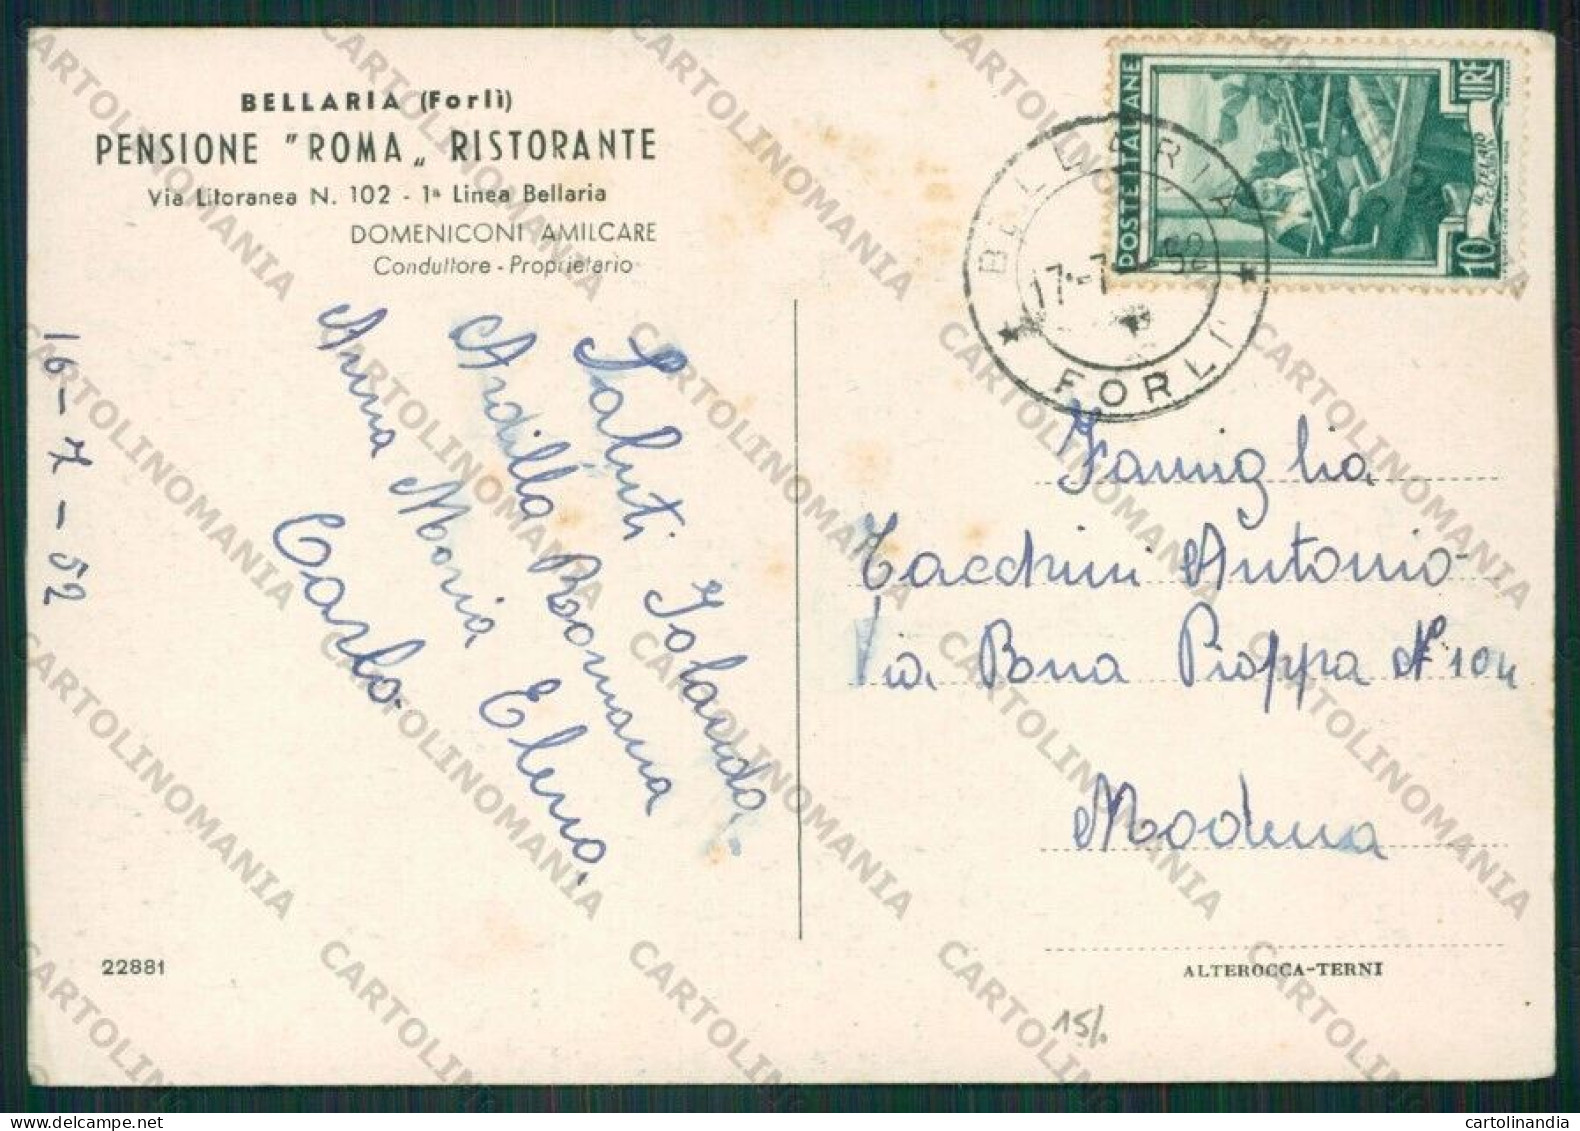 BELLARIA (Forlì)
PENSIONE "ROMA„ RISTORANTE
Via Litoranea N. 102 - 1ª Linea Bellaria
DOMENICONI AMILCARE
Conduttore - Proprietario
16-7-52
Saluti Jolanda
Ardilla Romana
Anna Maria Elena.
Carlo.
22881
POSTE ITALIANE
LIRE 10
BELLARIA
17-7-52
* FORLI *
Famiglia
Tacchini Antonio
Via Bna Pioppa N° 104
Modena
ALTEROCCA-TERNI
15/.
CARTOLINOMANIA
cartolinandia